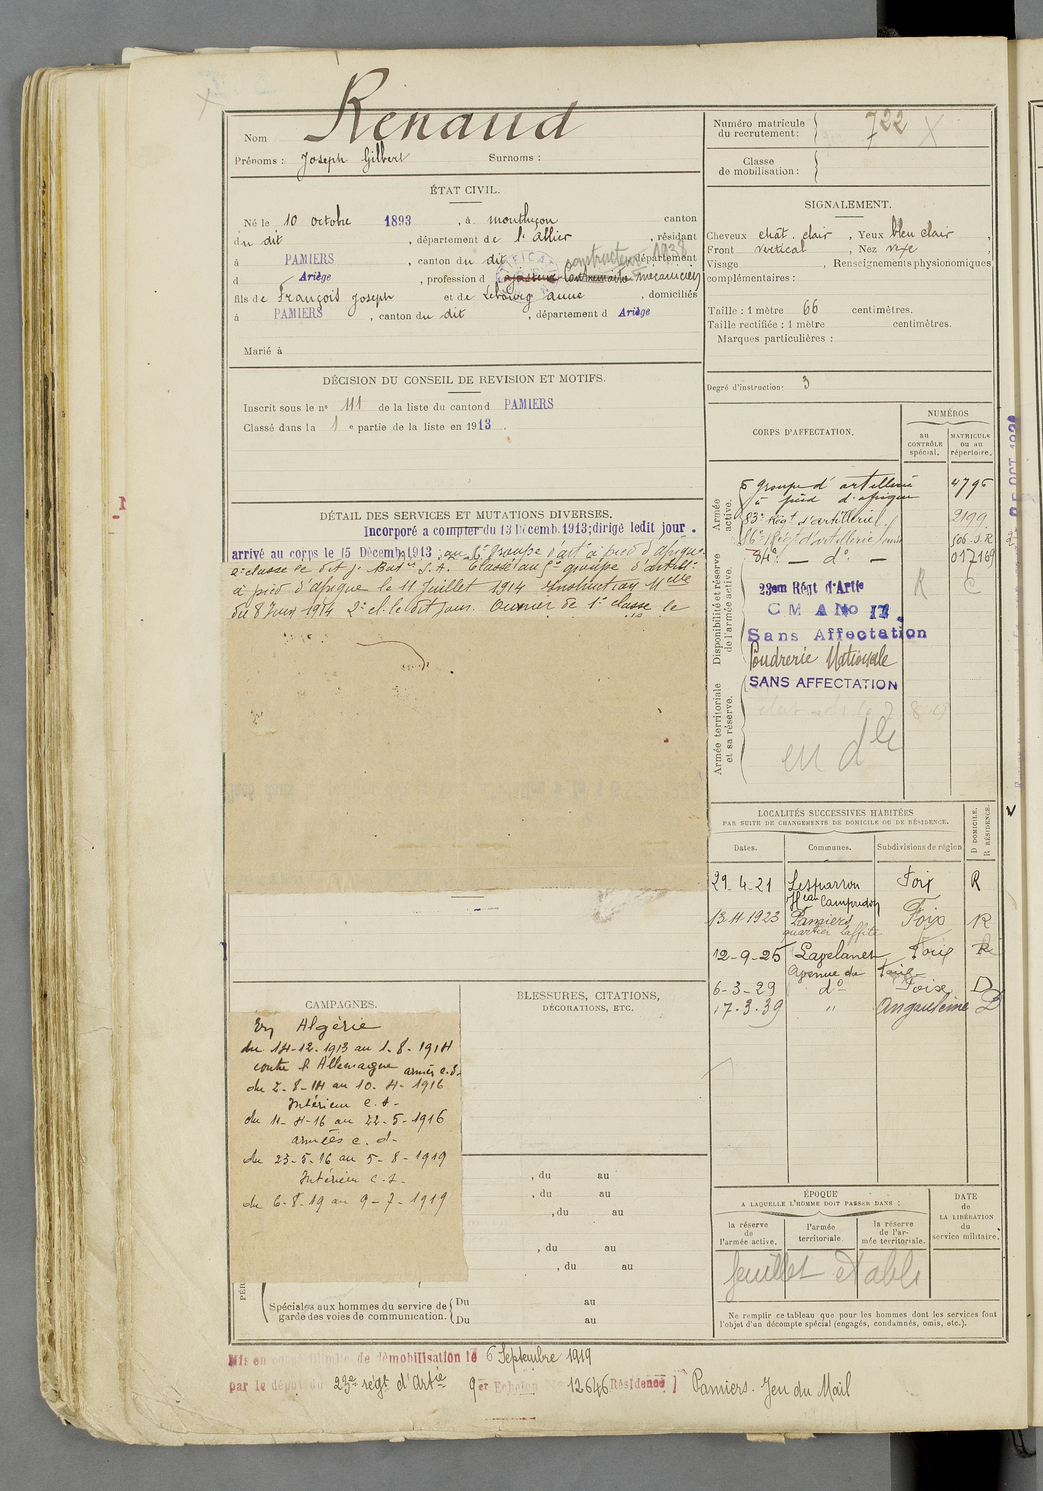 Nom Renaud
Prénoms : Joseph Gilbert Surnoms :
Numéro matricule du recrutement : 722
Classe de mobilisation :
ÉTAT CIVIL.
Né le 10 octobre 1893, à montluçon canton
du dit, département de l'Allier, résidant
à PAMIERS, canton du dit département
d Ariège, profession d constructeur 1938 mécanicien
fils de François Joseph et de Lebourg anne, domiciliés
à PAMIERS, canton du dit, département d Ariège
Marié à
DÉCISION DU CONSEIL DE REVISION ET MOTIFS.
Inscrit sous le nº 111 de la liste du canton d PAMIERS
Classé dans la 1 e partie de la liste en 1913.
DÉTAIL DES SERVICES ET MUTATIONS DIVERSES.
Incorporé a compter du 13 Décemb. 1913; dirigé ledit jour.
arrivé au corps le 15 Décemb 1913; au 5e Groupe d'art à pied d'afrique
2e classe le dit j. Classé au 5e groupe d'artill
à pied d'afrique le 11 Juillet 1914 Instruction
du 8 Juin 1914 2e cl. le dit jour. Ouvrier de 1e classe le
CAMPAGNES.
En Algérie
du 14-12-1913 au 1-8-1914
contre l'Allemagne armées c.d.
du 2-8-14 au 10-4-1916
Intérieur c.s.
du 11-4-16 au 22-5-1916
armées c.d.
du 23-5-16 au 5-8-1919
Intérieur c.s.
du 6-8-19 au 9-7-1919
BLESSURES, CITATIONS,
DÉCORATIONS, ETC.
, du au
, du au
, du au
, du au
, du au
PÉR
Spéciales aux hommes du service de garde des voies de communication.
Du au
Du au
SIGNALEMENT.
Cheveux chât. clair, Yeux bleu clair,
Front vertical, Nez
Visage, Renseignements physionomiques
complémentaires :
Taille : 1 mètre 66 centimètres.
Taille rectifiée : 1 mètre centimètres.
Marques particulières :
Degré d'instruction : 3
CORPS D'AFFECTATION.
NUMÉROS
au CONTRÔLE spécial.
MATRICULE ou au répertoire.
Armée active.
5 groupe d'artillerie 4795
à pied d'afrique
83e Régt d'artillerie 2199
Régt d'artillerie
84e dº 017169
Disponibilité et réserve de l'armée active.
23em Régt d'Artie
C M A No 17.
Sans Affectation
Poudrerie Nationale
SANS AFFECTATION
R C
Armée territoriale et sa réserve.
LOCALITÉS SUCCESSIVES HABITÉES
PAR SUITE DE CHANGEMENTS DE DOMICILE OU DE RÉSIDENCE.
Dates. Communes. Subdivisions de région D DOMICILE. R RÉSIDENCE.
29-4-21 Lesparrou Foix R
13-11-1923 Pamiers Foix R
quartier Laffite
12-9-25 Lavelanet Foix R
Avenue de Foix
6-3-29 dº Foix D
17.3.39 " Angoulème D
ÉPOQUE
A LAQUELLE L'HOMME DOIT PASSER DANS :
la réserve de l'armée active.
l'armée territoriale.
la réserve de l'armée territoriale.
DATE de LA LIBÉRATION du service militaire.
feuillet établi
Ne remplir ce tableau que pour les hommes dont les services font
l'objet d'un décompte spécial (engagés, condamnés, omis, etc.).
Mis en congé illimité de démobilisation le 6 Septembre 1919
par le dépôt du 23e régt d'Artie 9er Echelon 12646 Résidence Pamiers. Jeu du Mail